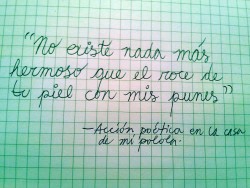 "No existe nada más
hermoso que el roce de
tu piel con mis punes"
—Acción poética en la casa
de mi polola.